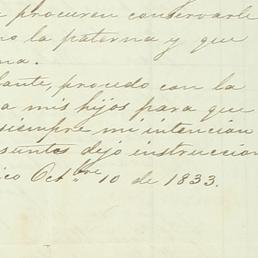 procuren conservarle
no la paterna y que
ma.
lante, procedo con la
a mis hijos para que
siempre mi intencion
suntos dejo instruccion
ico Octbre 10 de 1833.